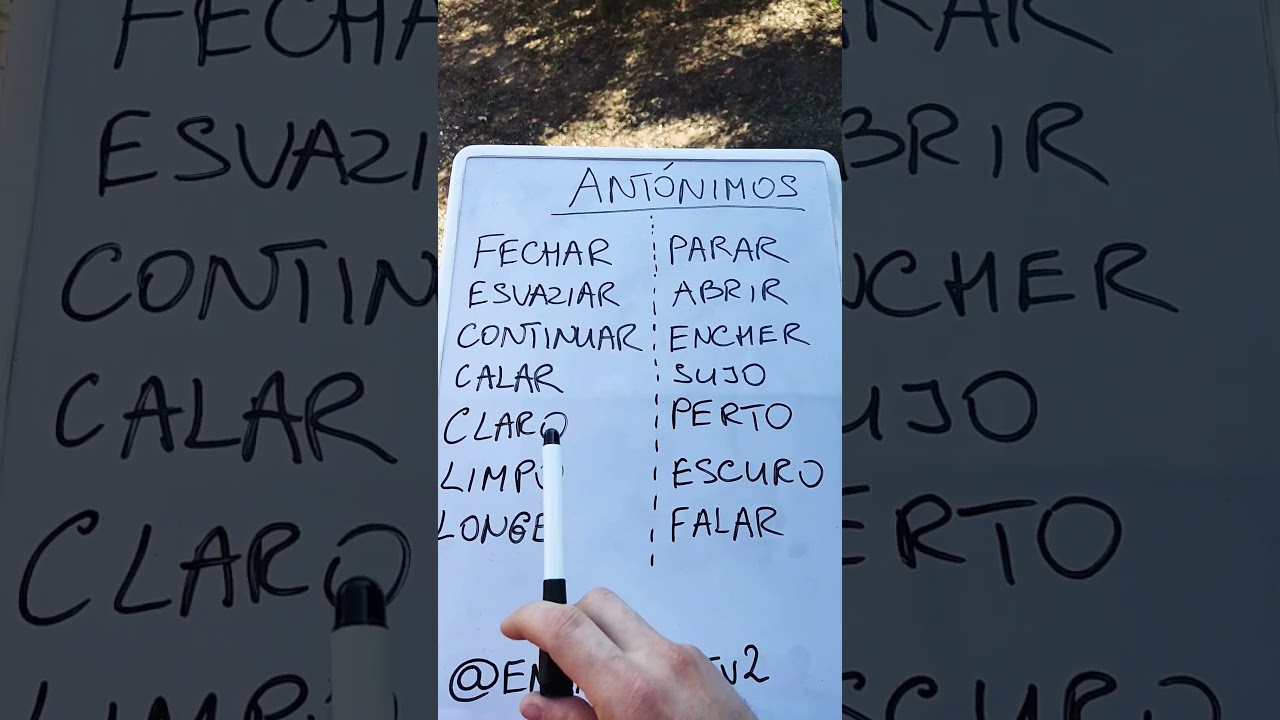 ANTÓNIMOS
FECHAR PARAR
ESVAZIAR ABRIR
CONTINUAR ENCHER
CALAR SUJO
CLARO PERTO
LIMPO ESCURO
LONGE FALAR